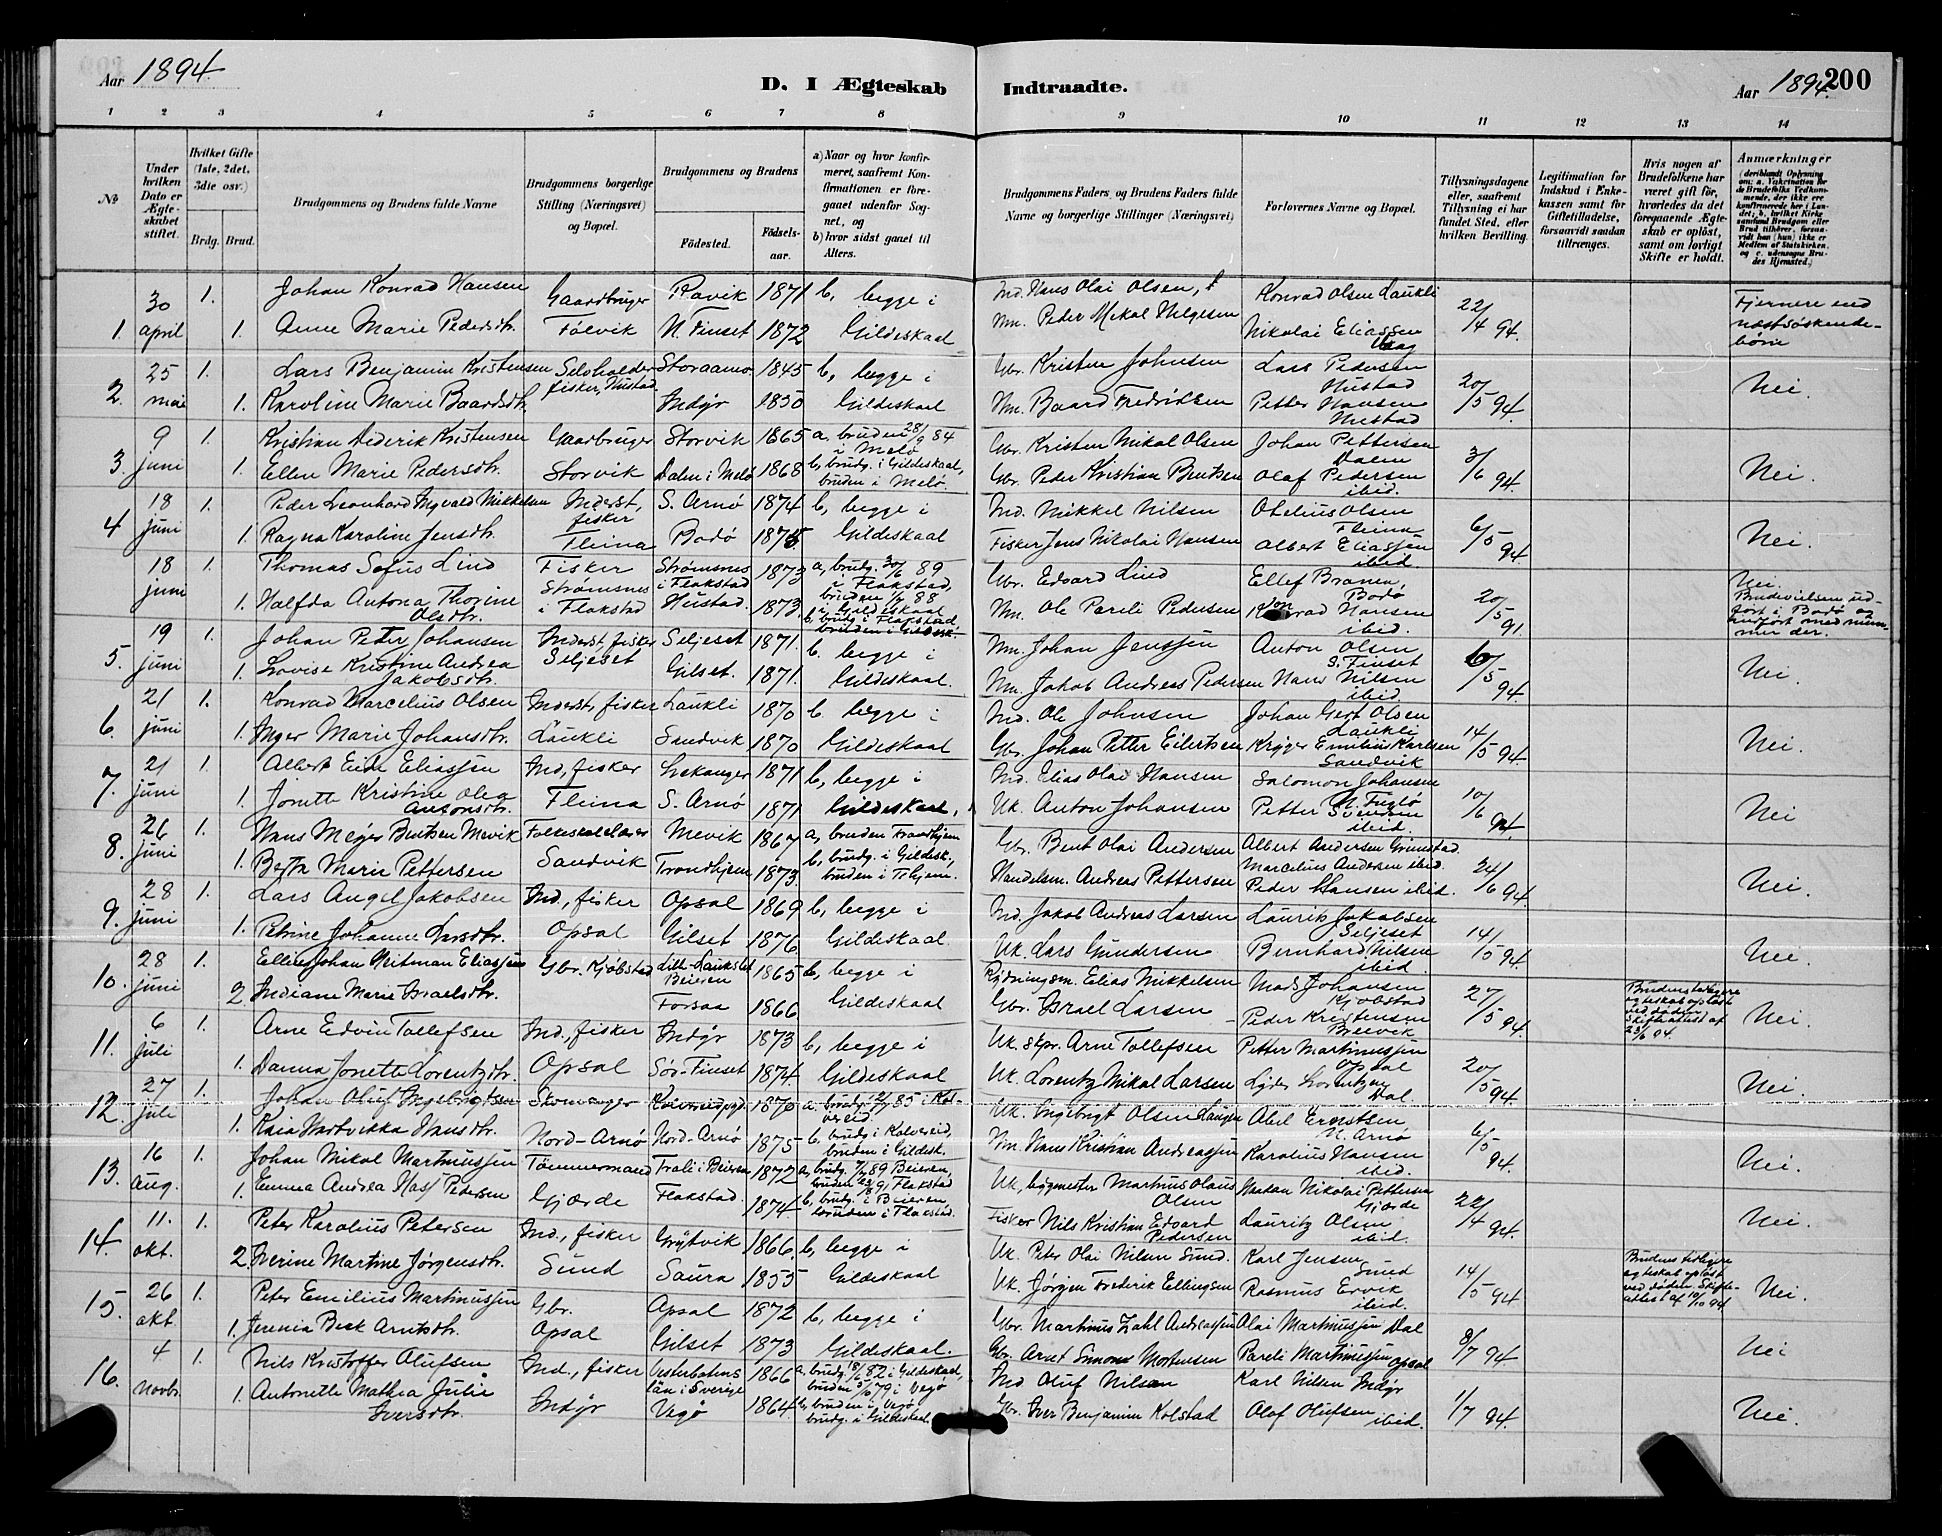 Aar 1894.
D. I Ægteskab Indtraadte.
Aar 1894. 200
1 2 3 4 5 6 7 8 9 10 11 12 13 14
№
Under hvilken Dato er Ægteskabet stiftet.
Hvilket Gifte (1ste, 2det, 3die osv.)
Brdg. Brud.
Brudgommens og Brudens fulde Navne
Brudgommens borgerlige Stilling (Næringsvei) og Bopæl.
Brudgommens og Brudens
Födested. Födselsaar.
a) Naar og hvor konfirmeret, saafremt Konfirmationen er foregaaet udenfor Sognet, og
b) hvor sidst gaaet til Alters.
Brudgommens Faders, og Brudens Faders fulde Navne og borgerlige Stillinger (Næringsvei)
Forlovernes Navne og Bopæl.
Tillysningsdagene eller, saafremt Tillysning ei har fundet Sted, efter hvilken Bevilling.
Legitimation for Indskud i Enkekassen samt for Giftetilladelse, forsaavidt saadan tiltrænges.
Hvis nogen af Brudefolkene har været gift för, hvorledes da det foregaaende Ægteskab er oplöst, samt om lovligt Skifte er holdt.
Anmærkninger (deriblandt Oplysning om: a. Vakcination for de Brudefolks Vedkommende, der ikke ere konfirmerede her i Landet; b. hvilket Kirkesamfund Brudgom eller Brud tilhörer, forsaavidt han (hun) ikke er Medlem af Statskirken, og c. udensogns Brudes Hjemsted.)
1. 30 april 1. Johan Konrad Hansen Gaardbruger Ravik 1871 b, begge i Ind. Hans Olai Olsen, Konrad Olsen Laukli 22/4 94. Fjernere end næstsøskendebørn
1. Anne Marie Pedersdtr. Følvik N. Finset 1872 Gildeskaal Nm. Peder Mekal Helgesen Nikolai Eliassen Vaag
2. 25 mai 1. Lars Benjamin Kristensen Selvholder fisker, Hustad Storaamo 1845 b, begge i Gbr. Kristen Johnsen Lars Pedersen Hustad 20/5 94. Nei.
1. Karoline Marie Baardsdtr. Indyr 1850 Gildeskaal Nm. Baard Fredriksen Petter Hansen Hustad
3. 9 juni 1. Kristian Diderik Kristensen Gaardbruger Storvik 1865 a, bruden 28/9 84 i Melø Gbr. Kristen Mikal Olsen Johan Pettersen Dalen 3/6 94. Nei.
1. Ellen Marie Pedersdtr. Storvik Dalen i Melø 1868 b, brudg. i Gildeskaal, bruden i Melø. Gbr. Peder Kristian Bentsen Olaf Pedersen ibid.
4 18 juni 1. Peder Leonhard Ingvald Mikkelsen Inderst, fisker S. Arnø 1874 b, begge i Ind. Mikkel Nilsen Otelius Olsen Fleina 6/5 94 Nei.
1. Ragna Karoline Jensdtr. Fleina Bodø 1875. Gildeskaal Fisker Jens Nikolai Hansen Albert Eliassen ibid.
18 juni 1. Thomas Sofus Lind Fisker Strømsnes i Flakstad 1873 a, brudg. 30/6 89 i Flakstad, bruden 1/7 88 i Gildeskaal Gbr. Edvard Lind Ellef Brænen, Bodø 20/5 91 Nei. Brudevielsen udført i Bodø og indført med nummer der.
1. Halfda Antona Thorine Olsdtr. Strømsnes i Flakstad Hustad. 1873. b, brudg. i Flakstad, bruden i Gildesk. Nm. Ole Pareli Pedersen Konrad Hansen ibid.
5. 19 juni 1. Johan Peter Johansen Inderst, fisker Seljeset 1871. b. begge i Nm. Johan Jenssen Anton Olsen S. Finset 6/5 94. Nei.
1. Lovise Kristine Andrea Jakobsdtr. Seljeset Gilset. 1871. Gildeskaal. Nm. Jakob Andreas Pedersen Hans Nilsen ibid
6. 21 juni 1. Konrad Marcelius Olsen Inderst, fisker Laukli 1870 b. begge i Ind. Ole Johnsen Johan Gert Olsen Laukli 14/5 94. Nei.
1. Inger Marie Johansdtr. Laukli Sandvik 1870 Gildeskaal Gbr. Johan Petter Eilertsen Krøger Emilius Karlsen Sandvik
7. 21 juni 1. Albert Eide Eliassen Ind, fisker Leskanger 1871 b, begge i Ind. Elias Olai Hansen Salomon Johansen N. Fuglø 10/6 94. Nei
1. Jonette Kristine Olea Antonsdtr. Fleina S. Arnø 1871 Gildeskaal, Uk. Anton Johansen Petter Svendsen ibid.
8. 26 juni 1. Hans Meyer Bentsen Mevik Folkeskolelærer Mevik 1867 a, bruden Trondhjem Gbr. Bent Olai Andersen Albert Andersen Grimstad 24/6 94. Nei.
1. Bertha Marie Pettersen Sandvik Trondhjem 1873. b, brudg. i Gildesk., bruden i Thjem. Handelsm. Andreas Pettersen Marcelius Andersen ibid. Peder Hansen ibid.
9. 28 juni 1. Lars Angel Jakobsen Ind., fisker Opsal 1869 b, begge i Ind. Jakob Andreas Larsen Laurits Jakobsen Seljeset 14/5 94. Nei.
1. Petrine Johanne Larsdtr. Opsal Gilset 1876 Gildeskaal Uk. Lars Gundersen Bernhard Nilsen ibid
10. 28 juni 1. Elling Johan Heitman Eliassen Gbr. Kjøbstad Lille-Laukslet Beieren 1865 b, begge i Rydningsm. Elias Mikkelsen Mads Johansen Kjøbstad 27/5 94. Brudens tidligere ægteskab opløst ved døden Skifteattest af 23/6 94. Nei.
2 Indiane Marie Israelsdtr. Forsaa 1866 Gildeskaal Gbr. Israel Larsen Peder Kristensen Breivik
11. 6 juli 1. Arne Edvin Tollefsen Ind., fisker Indyr 1873 b, begge i Uk. skpr. Arne Tollefsen Petter Martinussen Opsal 20/5 94. Nei.
1. Danna Jonette Lorentzdtr. Opsal Sør-Finset 1874 Gildeskaal Uk. Lorentz Mikal Larsen Lyder Lorentzen Dal.
12. 27 juli 1. Johan Oluf Ingebrigtsen Skomager Kolvereid pgd. 1870 a. brudg. 85 i Kolvereid Uk. Ingebrigt Olsen Abel Ernstsen, N. Arnø 6/5 94. Nei.
1. Kaia Hartvikka Hansdtr. Nord-Arnø Nord-Arnø 1875 b. brudg i Kolvereid, bruden i Gildesk. Nm. Hans Kristian Andreassen Karolius Hansen ibid.
13. 16 aug. 1. Johan Nikol Martinussen Tømmermand Trali i Beieren 1872 a, brudg. 89 Beieren, bruden 91 Flakstad Uk, bygmester Martinus Olaus Olsen Nikolai Pettersen Gjørde 22/4 94. Nei.
1. Emma Andrea Hass Pedersen Gjørde Flakstad. 1874 b, brudg. i Beieren, bruden i Flakstad. Fisker Nils Kristian Edvard Pedersen Lauritz Olsen ibid.
14. 11. okt. 1. Peter Karolius Petersen Ind., fisker Grytvik 1866. b, begge i Uk. Peter Olai Nilsen Sund. Karl Jensen Sund 14/5 94 Brudens tidligere ægteskab opløst ved døden, Skifteattest af 10/10 94 Nei.
2. Iverine Martine Jørgensdtr. Sund Saura 1855 Gildeskaal Uk. Jørgen Frederik Ellingsen Rasmus Ervik ibid.
15. 26 okt 1. Peter Emilius Martinussen Gbr. Opsal 1872 b, begge i Gbr. Martinus Zahl Andreassen Olai Martinussen Dal 8/7 94 Nei
1. Jerenia Beck Arntsdtr. Opsal Gilset 1873 Gildeskaal. Gbr. Arnt Simon Mortensen Pareli Martinussen Opsal
16. 4 novbr. 1. Nils Kristoffer Olufsen Ind., fisker Vesterbottens län i Sverige 1866 a. brudg. 18/6 82 i Gildeskaal, bruden 79 i Vegø Ind Oluf Nilsen Karl Nilsen Indyr 1/7 94. Nei.
1. Antonette Mathea Julie Iversdtr. Indyr Vegø 1864 b, bruden i Vegø brudg. i Gildeskaal. Gbr. Iver Benjamin Kolstad Olaf Olufsen ibid.